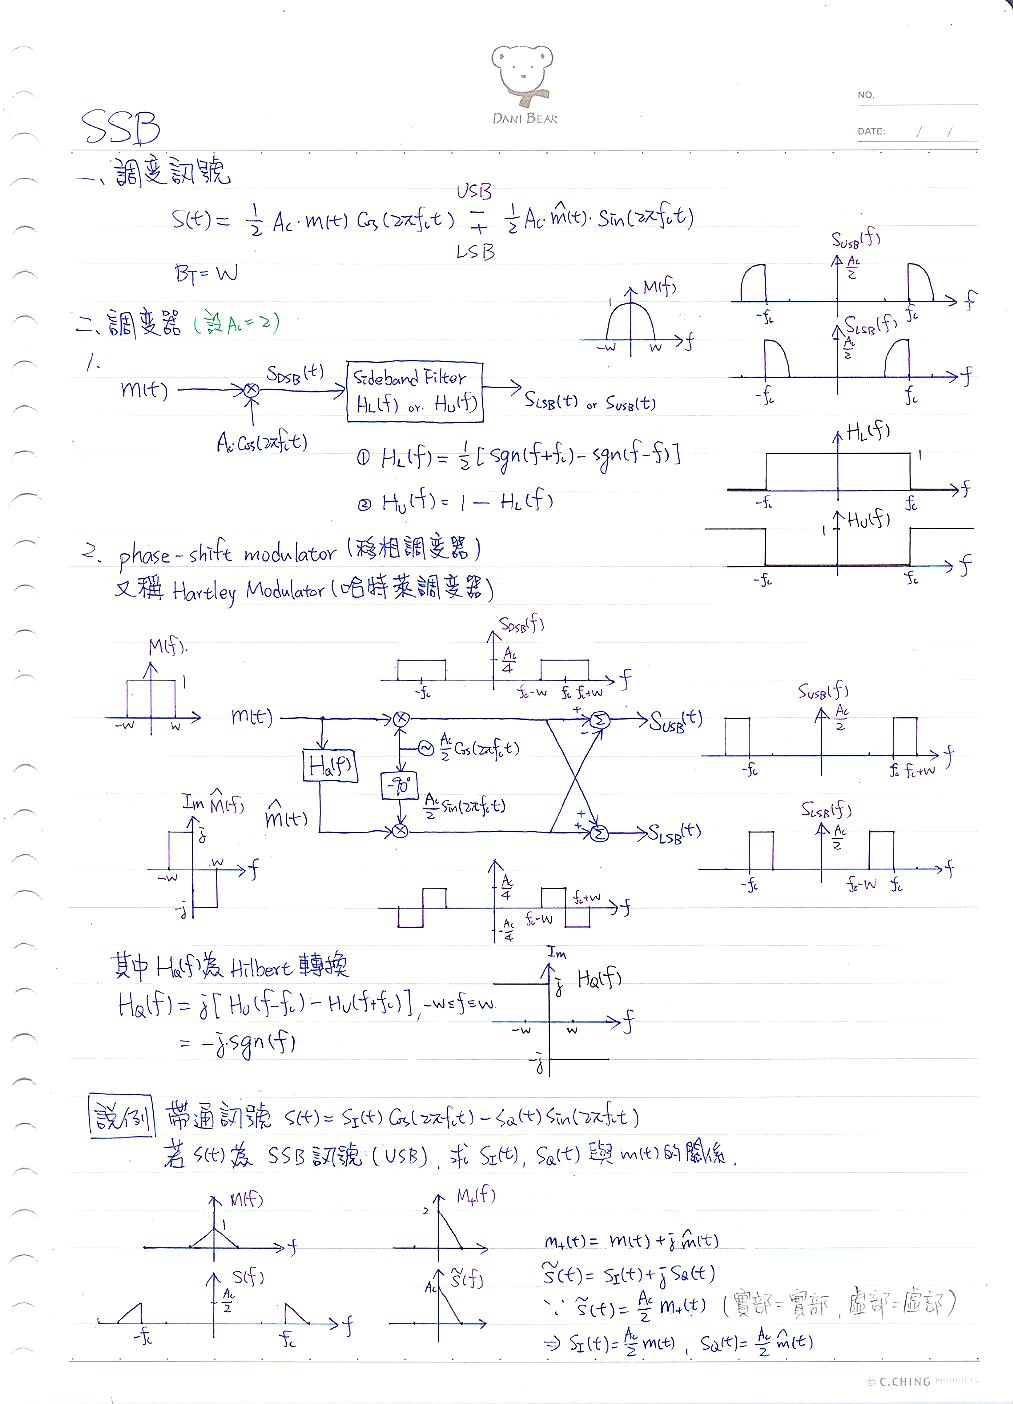 DANI BEAR
NO.
DATE: / /
SSB
一、調变訊號
USB
S(t) = 1/2 Ac·m(t) Cos(2πfct) ∓ 1/2 Ac·m̂(t)·Sin(2πfct)
LSB
BT = W
SUSB(f)
Ac/2
-fc fc f
M(f)
1
-W W f
SLSB(f)
Ac/2
-fc fc f
二、調变器 (設Ac=2)
1.
m(t)
SDSB(t)
Sideband Filter
HL(f) or HU(f)
SLSB(t) or SUSB(t)
Ac·Cos(2πfct)
① HL(f) = 1/2 [sgn(f+fc) - sgn(f-f)]
② HU(f) = 1 - HL(f)
HL(f)
1
-fc fc f
HU(f)
1
-fc fc f
2. phase-shift modulator (移相調变器)
又稱 Hartley Modulator (哈特萊調变器)
M(f)
1
-W W
SDSB(f)
Ac/4
-fc fc-W fc fc+W f
m(t)
+
-
Σ
SUSB(t)
HQ(f)
~ Ac/2 Cos(2πfct)
-90°
Ac/2 Sin(2πfct)
m̂(t)
+
+
Σ
SLSB(t)
SUSB(f)
Ac/2
-fc fc fc+W f
Im M̂(f)
j
-W W f
-j
SLSB(f)
Ac/2
-fc fc-W fc f
Ac/4
-Ac/4
fc-W fc+W f
其中 HQ(f)為 Hilbert 轉換
HQ(f) = j[HU(f-fc) - HU(f+fc)], -W≤f≤W
= -j·sgn(f)
Im
j HQ(f)
-W W f
-j
說例 帶通訊號 S(t) = SI(t) Cos(2πfct) - SQ(t) Sin(2πfct)
若 S(t) 為 SSB 訊號 (USB), 求 SI(t), SQ(t) 與 m(t) 的關係.
M(f)
1
f
M+(f)
2
S(f)
Ac/2
-fc fc f
S̃(f)
Ac
m+(t) = m(t) + j m̂(t)
S̃(t) = SI(t) + j SQ(t)
∵ S̃(t) = Ac/2 m+(t) (實部=實部, 虛部=虛部)
⇒ SI(t) = Ac/2 m(t), SQ(t) = Ac/2 m̂(t)
© C.CHING PRODUCTS